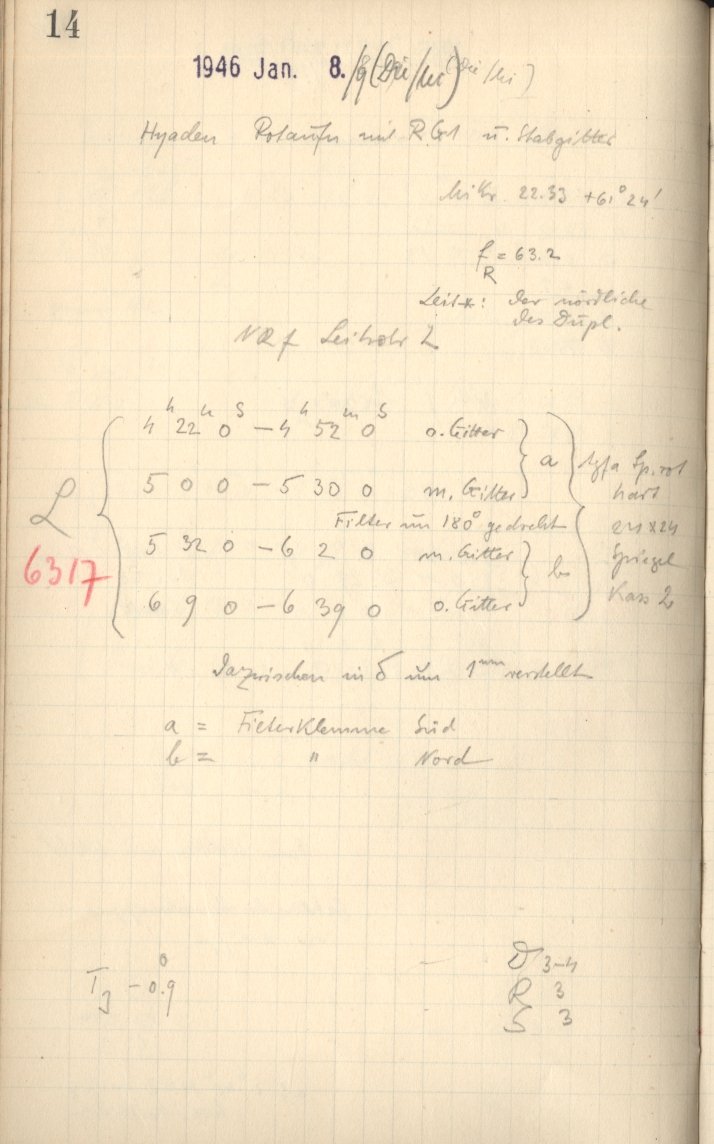 14
1946 Jan. 8./9 (Dü/hi) (Dü/hi)
Hyaden Rotaufn mit R G1 u. Stabgitter
Mikr. 22.33 +61° 24'
f_R = 63.2
Leit*: der nördliche
des Dupl.
NR f Leitrohr 2
4h 22m 0s – 4h 52m 0s o. Gitter
a
Agfa Sp. rot
5 0 0 – 5 30 0 m. Gitter
hart
L
Filter um 180° gedreht
24 x 24
5 32 0 – 6 2 0 m. Gitter
b
Spiegel
6317
Kass 2
6 9 0 – 6 39 0 o. Gitter
Dazwischen in δ um 1mm verstellt
a = Filterklemme Süd
b = " Nord
T3 –0.9°
D 3–4
R 3
S 3